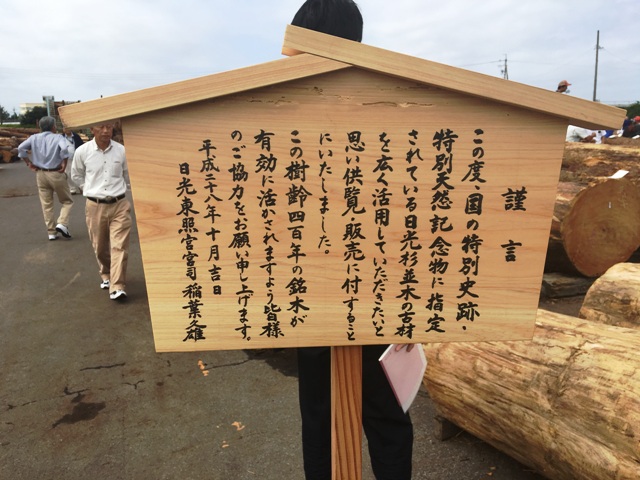 謹言
この度、国の特別史跡・
特別天然記念物に指定
されている日光杉並木の古材
を広く活用していただきたいと
思い供覧・販売に付すること
にいたしました。
この樹齢四百年の銘木が
有効に活かされますよう皆様
のご協力をお願い申し上げます。
平成二十八年十月吉日
日光東照宮宮司 稲葉久雄